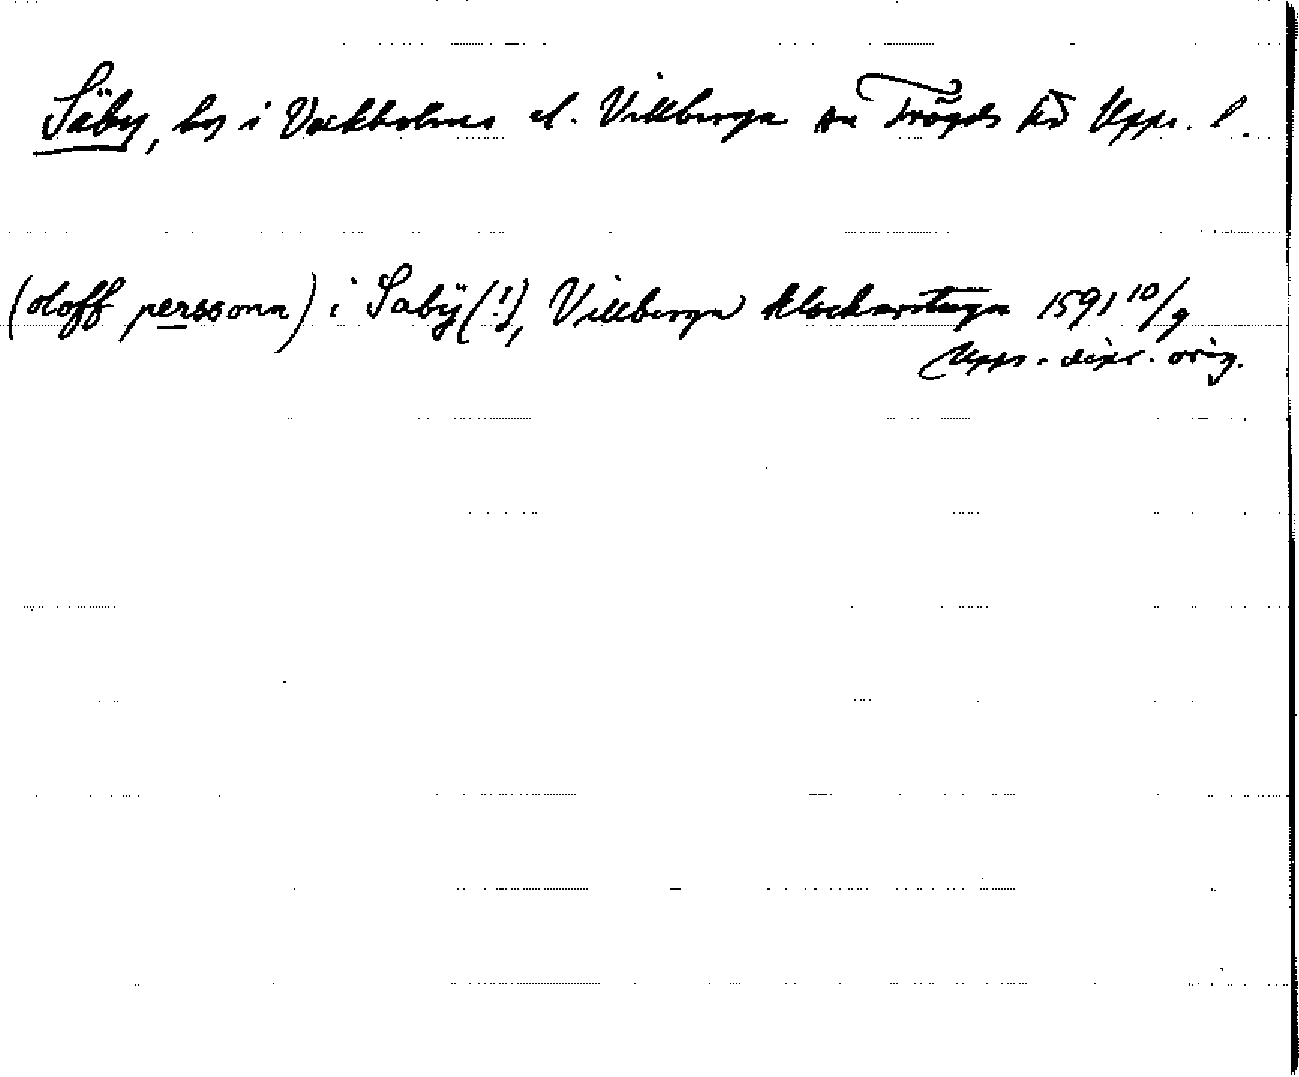 Säby, by i Vackholms el. Villberga sn Trögds hd Upps. l.
(oloff perssonn) i Sabÿ (!), Villberga klockarstuga 1591 10/9
Upps. dipl. orig.